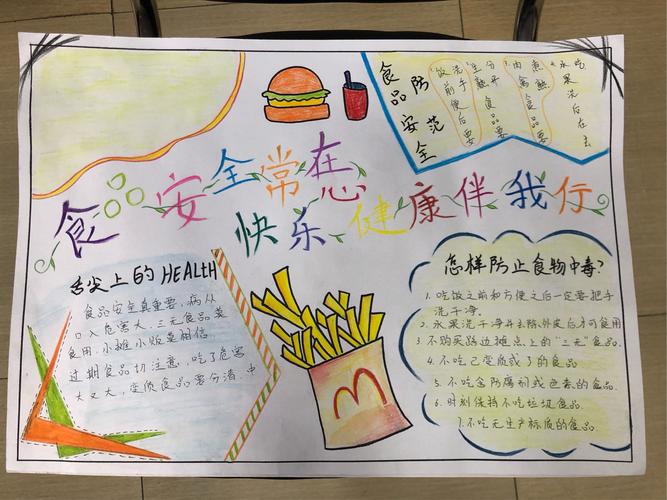 食品安全
防范
饭前便后要
洗手
生熟食品要
分开
肉禽食品要
煮熟
水果洗后在去
吃
食品安全常在心
快乐健康伴我行
舌尖上的HEALTH
食品安全真重要,病从
口入危害大.三无食品莫
食用.小摊小贩莫相信
过期食品切注意,吃了危害
大又大,变质食品要分清.中
怎样防止食物中毒?
1.吃饭之前和方便之后一定要把手
洗干净.
2.水果洗干净并去除外皮后才可食用
3.不购买路边摊点上的"三无"食品.
4.不吃已变质或了的食品.
5.不吃含防腐剂或色素的食品.
6.时刻保持不吃垃圾食品.
7.不吃无生产标质的食品.